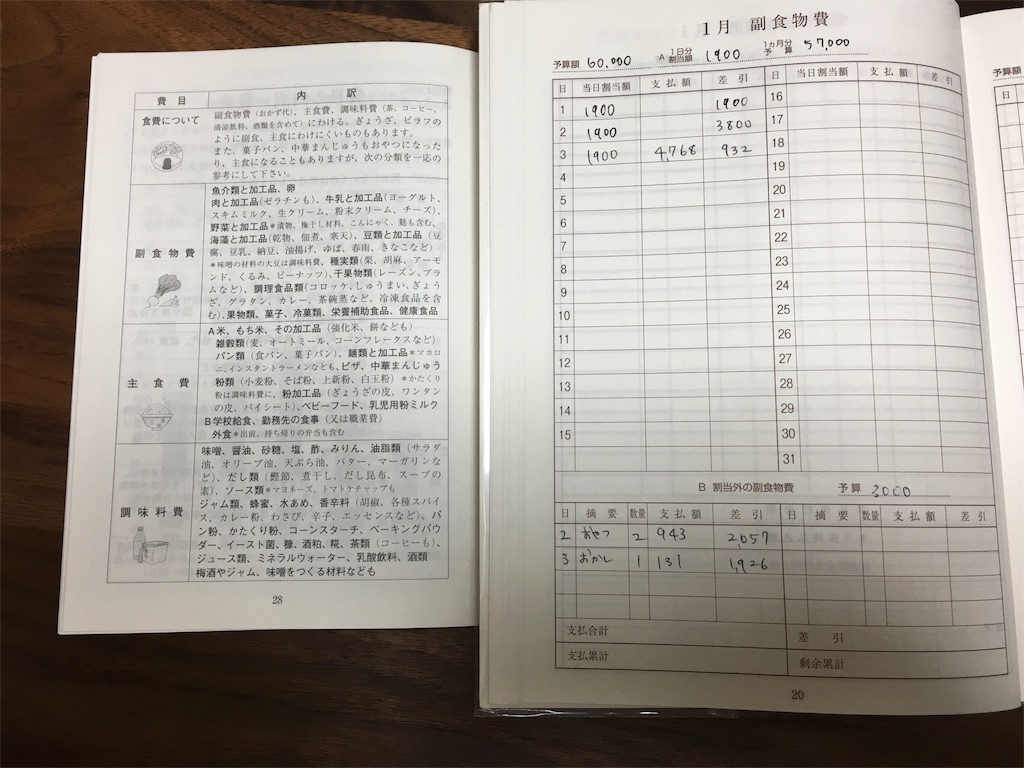 費目 内訳
食費について
副食物費(おかず代)、主食費、調味料費(茶、コーヒー、
清涼飲料、酒類を含めて)にわける。ぎょうざ、ピラフの
ように副食、主食にわけにくいものもあります。
また、菓子パン、中華まんじゅうもおやつになった
り、主食になることもありますが、次の分類を一応の
参考にして下さい。
副食物費
魚介類と加工品、卵
肉と加工品(ゼラチンも)、牛乳と加工品(ヨーグルト、
スキムミルク、生クリーム、粉末クリーム、チーズ)、
野菜と加工品*漬物、梅干し材料、こんにゃく、麩も含む、
海藻と加工品(乾物、佃煮、寒天)、豆類と加工品(豆
腐、豆乳、納豆、油揚げ、ゆば、春雨、きなこなど)
*味噌の材料の大豆は調味料費、種実類(栗、胡麻、アーモ
ンド、くるみ、ピーナッツ)、干果物類(レーズン、プラ
ムなど)、調理食品類(コロッケ、しゅうまい、ぎょう
ざ、グラタン、カレー、茶碗蒸など、冷凍食品を含
む)、果物類、菓子、冷菓類、栄養補助食品、健康食品
主食費
A米、もち米、その加工品(強化米、餅なども)
雑穀類(麦、オートミール、コーンフレークスなど)
パン類(食パン、菓子パン)、麺類と加工品*マカロ
ニ、インスタントラーメンなども、ピザ、中華まんじゅう
粉類(小麦粉、そば粉、上新粉、白玉粉)*かたくり
粉は調味料費に、粉加工品(ぎょうざの皮、ワンタン
の皮、パイシート)、ベビーフード、乳児用粉ミルク
B学校給食、勤務先の食事(又は職業費)
外食*出前、持ち帰りの弁当も含む
調味料費
味噌、醤油、砂糖、塩、酢、みりん、油脂類(サラダ
油、オリーブ油、天ぷら油、バター、マーガリンな
ど)、だし類(鰹節、煮干し、だし昆布、スープの
素)、ソース類*マヨネーズ、トマトケチャップも
ジャム類、蜂蜜、水あめ、香辛料(胡椒、各種スパイ
ス、カレー粉、わさび、辛子、エッセンスなど)、パ
ン粉、かたくり粉、コーンスターチ、ベーキングパウ
ダー、イースト菌、糠、酒粕、糀、茶類(コーヒーも)、
ジュース類、ミネラルウォーター、乳酸飲料、酒類
梅酒やジャム、味噌をつくる材料なども
28
1月 副食物費
予算額 60,000 A 1日分割当額 1900 1ヵ月分予算 57,000
日 当日割当額 支払額 差引 日 当日割当額 支払額 差引
1 1900 1900 16
2 1900 3800 17
3 1900 4,768 932 18
4 19
5 20
6 21
7 22
8 23
9 24
10 25
11 26
12 27
13 28
14 29
15 30
31
B 割当外の副食物費 予算 3000
日 摘要 数量 支払額 差引 日 摘要 数量 支払額 差引
2 おやつ 2 943 2,057
3 おかし 1 131 1,926
支払合計 差引
支払累計 剰余累計
20
予算額
日